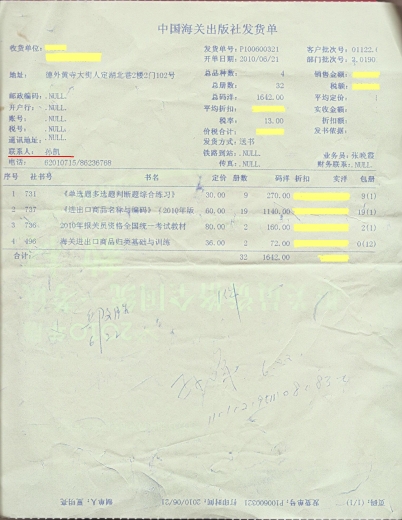 中国海关出版社发货单
收货单位: 发货单号: F100600321 客户批次号: 01122.(
开单日期: 2010/06/21 部门批次号: 2.0190.
地址: 德外黄寺大街人定湖北巷2楼2门102号 总品种数: 4 销售金额:
总册数: 32 税额:
邮政编码: .NULL. 总码洋: 1642.00 平均定价: (
开户行: .NULL. 平均折扣: 实收金额:
账号: .NULL. 税率: 13.00 折扣额:
税号: .NULL. 价税合计: 发书依据:
通讯地址: .NULL. 发货方式: 送书
联系人: 孙凯 铁路到站: .NULL. 业务员: 张晓霞
电话: 82010715/86236768 传真: .NULL. 财务联系: .NULL.
序号 社书号 书名 定价 册数 码洋 折扣 实洋 包册
1 731 《单选题多选题判断题综合练习》 30.00 9 270.00 9(1)
2 737 《进出口商品名称与编码》(2010年版 60.00 19 1140.00 19(1)
3 736 2010年报关员资格全国统一考试教材 80.00 2 160.00 2(1)
4 496 海关进出口商品归类基础与训练 36.00 2 72.00 0(12)
合计: 32 1642.00
制单人: 夏明亮 打印时间: 2010/06/21 发货单号: F100600321 页码: (1/1)